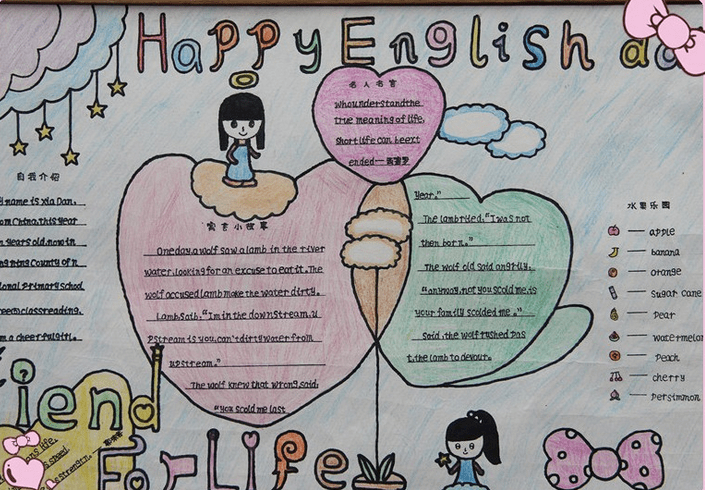 Happy English
名人名言
whounderstandthe
true meaning of life,
Short life can beext
ended—西塞罗
自我介绍
name is Xia Dan.
om China.this year
years old.now in
County of n
ional primary school
class reading.
m a cheerful girl.
寓言小故事
Oneday.a wolf saw a lamb in the river
water.looking for an excuse to eat it. The
wolf accused lamb make the water dirty.
Lamb saib. "Im in the downstream. u
Pstream is you.can't dirty water from
upstream."
The wolf knew that wrong.said.
"you scold me last
year."
The lamb ried. "I was not
then born."
The wolf old said angrily.
"anyway.not you scold me.is
your family scolded me."
Said.the wolf rushed pas
t.the lamb to devour.
水果乐园
apple
banana
orange
Sugar cane
Pear
watermelon
Peach
cherry
Persimmon
iend
For Life